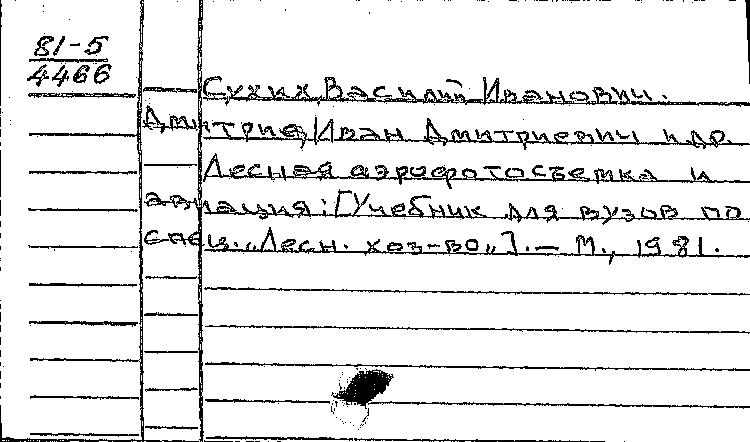 81-5
4466
Сухих, Василий Иванович.
Дмитриев, Иван Дмитриевич и др.
Лесная аэрофотосъемка и
авиация: [Учебник для вузов по
спец. „Лесн. хоз-во„]. — М., 1981.